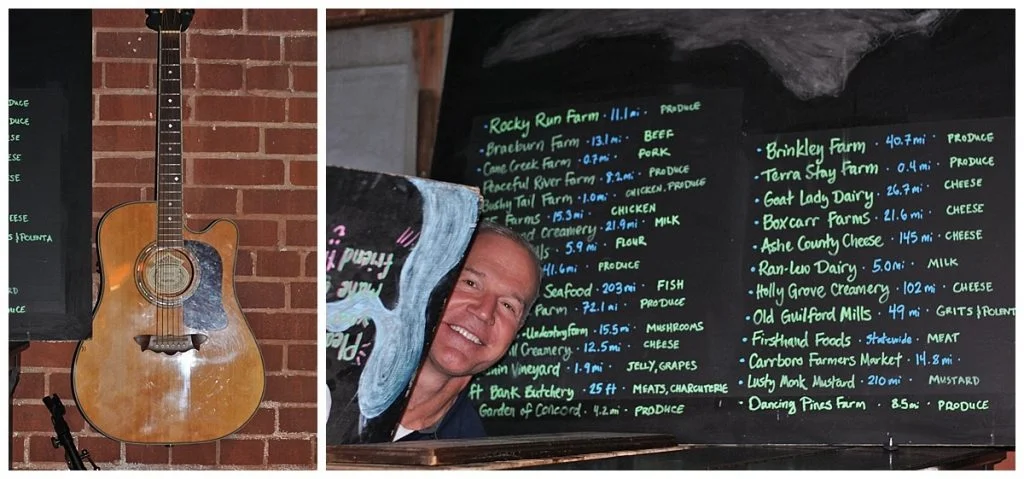 DUCE
DUCE
SE
ESE
SE
EESE
S & POLENTA
RD
Rocky Run Farm · 11.1 mi · PRODUCE
Braeburn Farm · 13.1 mi · BEEF
Cane Creek Farm · 0.7 mi · PORK
Peaceful River Farm · 8.2 mi · PRODUCE
Bushy Tail Farm · 1.0 mi · CHICKEN, PRODUCE
Farms · 15.3 mi · CHICKEN
Creamery · 21.9 mi · MILK
lls · 5.9 mi · FLOUR
41.6 mi · PRODUCE
Seafood · 203 mi · FISH
Farm · 72.1 mi · PRODUCE
15.5 mi · MUSHROOMS
ll Creamery · 12.5 mi · CHEESE
Vineyard · 1.9 mi · JELLY, GRAPES
ft Bank Butchery · 25 ft · MEATS, CHARCUTERIE
Garden of Concord · 4.2 mi · PRODUCE
friend
make
Plea
• Brinkley Farm · 40.7 mi · PRODUCE
• Terra Stay Farm · 0.4 mi · PRODUCE
• Goat Lady Dairy · 26.7 mi · CHEESE
• Boxcarr Farms · 21.6 mi · CHEESE
• Ashe County Cheese · 145 mi · CHEESE
• Ran-Lew Dairy · 5.0 mi · MILK
• Holly Grove Creamery · 102 mi · CHEESE
• Old Guilford Mills · 49 mi · GRITS & POLENT
• Firsthand Foods · Statewide · MEAT
• Carrboro Farmers Market · 14.8 mi ·
• Lusty Monk Mustard · 210 mi · MUSTARD
• Dancing Pines Farm · 8.5 mi · PRODUCE